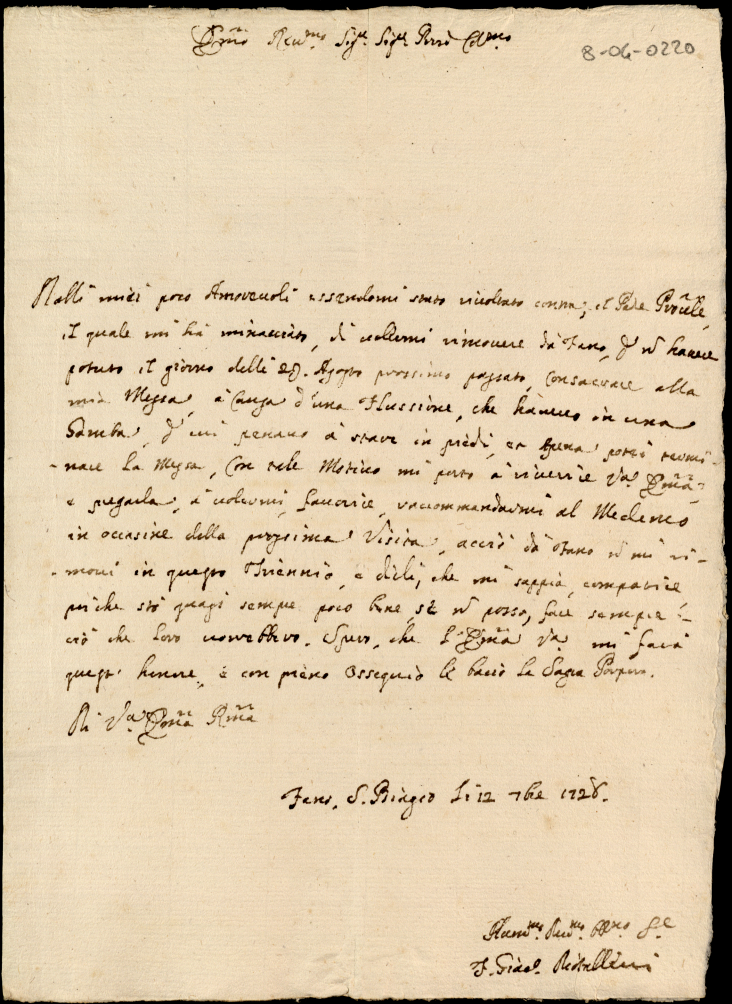 Em̃o Reu.mo Sig.r Sig.r Pr̃on Col.mo
8-06-0220
Dalli miei poco Amoreuoli essendomi stato riuoltato contra, il P̃adre Prou̅le,
il quale mi hà minacciato, di uolermi rimouere dà Fano, p̱ ñ hauere
potuto il giorno delli 28. Agosto prossimo passato, consacrare alla
mia Messa, à causa d'una Flussione, che haueuo in una
Gamba, p̱ cui penauo à stare in piedi, et apena potei termi-
-nare la Messa, Con tale Motiuo mi porto à riuerire V.ra Em̃a,
e pregarla, à uolermi fauorire, raccommandarmi al Medemo
in occasine della prossima Visita, acciò dà Fano ñ mi ri-
-moui in questo Triennio, e dirli, che mi sappia compatire
perche stò quasi sempre poco bene, se ñ posso, fare sempre
ciò che loro uorrebbero. Spero, che l'Em̃a V.ra mi farà
questo honore, e con pieno Ossequio le bacio la Sagra Porpora.
Di V.ra Em̃a R̃ma
Fano. S. Biagio li 12 7bre 1728.
Hum.mo Deu.mo Obb.mo Se.
F. Giac.